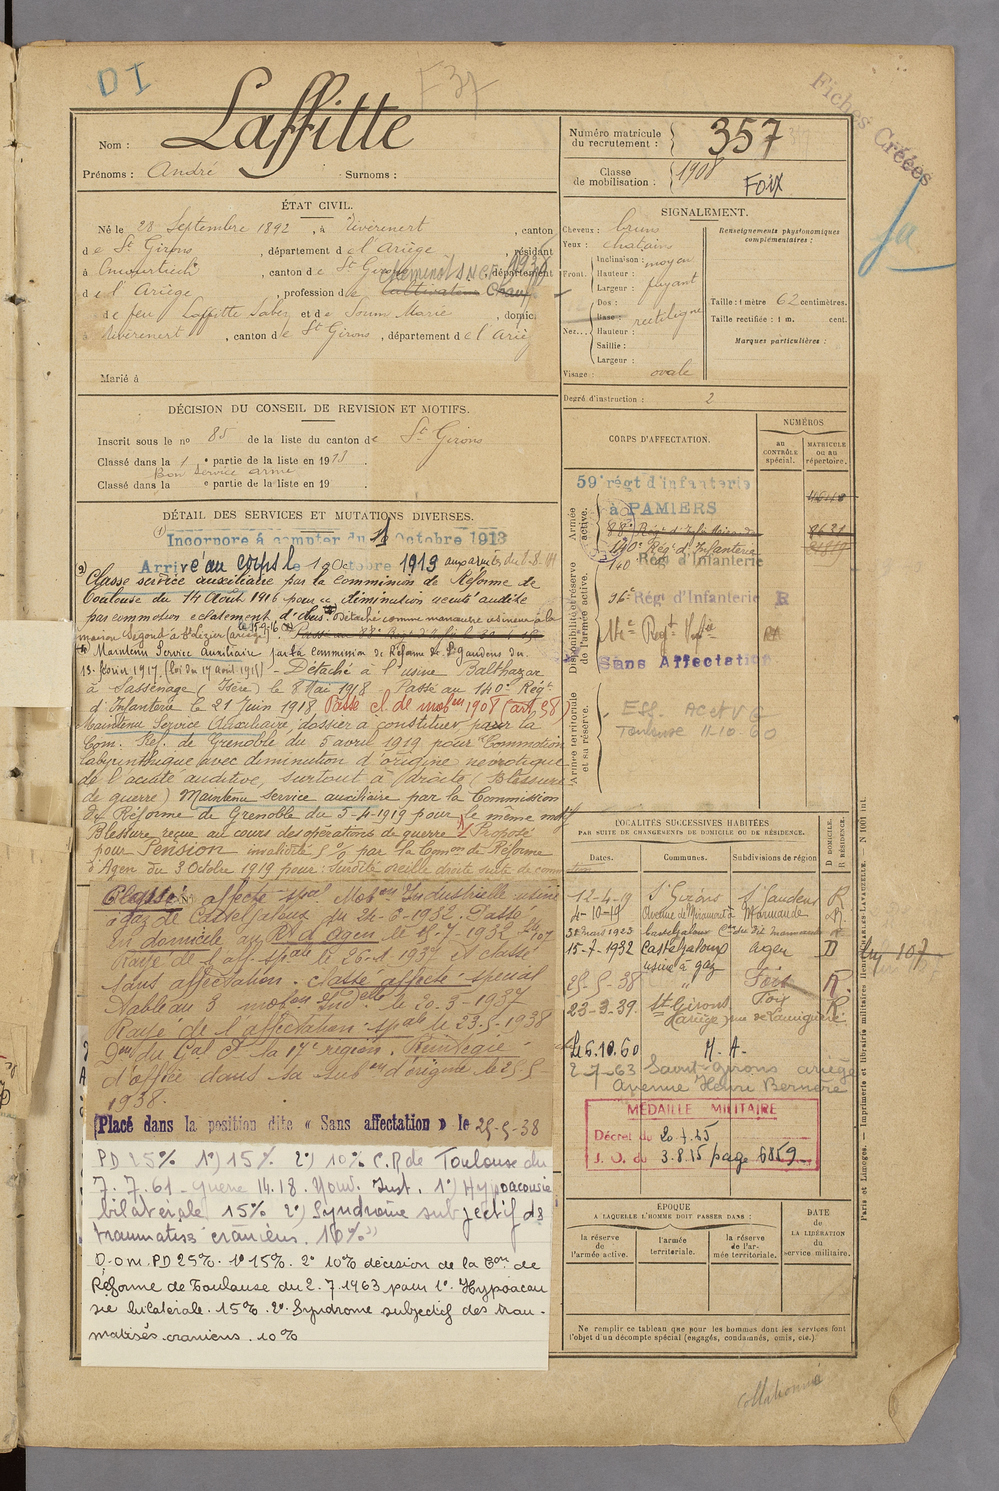 D I
F 37
Fiches Créées
Nom : Laffitte
Prénoms : André Surnoms :
Numéro matricule du recrutement : 357
Classe de mobilisation : 1908 Foix
ÉTAT CIVIL.
Né le 28 Septembre 1892, à Rivèrenert, canton
de St Girons, département de l'Ariège, résidant
à Encourtiech, canton de St Girons, département
de l'Ariège, profession de cultivateur Cheminot S.N.C.F. 1938
de feu Laffitte et de Soum Marie, domic.
à Rivèrenert, canton de St Girons, département de l'Ariège
Marié à
SIGNALEMENT.
Cheveux : bruns
Yeux : chatains
Front. Inclinaison : moyen
Hauteur :
Largeur : fuyant
Nez... Dos :
Base : rectiligne
Hauteur :
Saillie :
Largeur :
Visage : ovale
Renseignements physionomiques complémentaires :
Taille : 1 mètre 62 centimètres.
Taille rectifiée : 1 m. cent.
Marques particulières :
Degré d'instruction : 2
DÉCISION DU CONSEIL DE REVISION ET MOTIFS.
Inscrit sous le no 85 de la liste du canton de St Girons
Classé dans la 1e partie de la liste en 1913.
Bon service armé
Classé dans la e partie de la liste en 19 .
DÉTAIL DES SERVICES ET MUTATIONS DIVERSES.
Incorporé à compter du 1 Octobre 1913
Arrivé au corps le 1 Octobre 1913 aux armées du 2.8.14
Classé service auxiliaire par la commission de Réforme de
Toulouse du 14 Août 1916 pour diminution acuité auditive
par commotion éclatement d'obus. Détaché comme manœuvre usineur à la
maison Segond à St Lizier (Ariège)
Maintenu Service Auxiliaire par la commission de Réforme de St Gaudens du
13 février 1917. (loi du 17 août 1915) - Détaché à l'usine Balthazar
à Sassenage (Isère) le 8 Mai 1918 Passé au 140e Régt
d'Infanterie le 21 Juin 1918 Passé cl. de mobon 1908 (art 58)
Maintenu Service Auxiliaire, dossier à constituer par la
Com. Réf. de Grenoble du 5 avril 1919 pour "Commotion
labyrinthique avec diminution d'origine névrotique
de l'acuité auditive, surtout à droite (Blessure
de guerre) Maintenu Service auxiliaire par la Commission
de Réforme de Grenoble du 5-4-1919 pour le même motif
Blessure reçue au cours des opérations de guerre Proposé
pour Pension invalidité 5% par la Comon de Réforme
d'Agen du 3 Octobre 1919 pour : surdité oreille droite suite de
Classé affecté spal Mobon Industrielle usine
à gaz de Casteljaloux du 24-6-1932. Passé
en domicile au Rt d'Agen le 15-7-1932
Rayé de l'aff. spale le 26-1-1937 et classé
sans affectation. Classé affecté spécial
Tableau 3 mobon Indelle le 2-3-1937
Rayé de l'affectation spale le 23-5-1938
Don du Gal Ct la 17e région. Réintégré
d'office dans sa Subon d'origine le 25-5-
1938.
Placé dans la position dite « Sans affectation » le 25-5-38
PD 25% 1°) 15% 2°) 10% C.R de Toulouse du
7.7.61 guerre 14.18. Nouv. Inst. 1°) Hypoacousie
bilatérale 15% 2°) Syndrome subjectif des
traumatisés crâniens. 10%
D.om. PD 25%. 1° 15%. 2° 10% décision de la Com. de
Réforme de Toulouse du 2.7.1963 pour 1°. Hypoacou
sie bilatérale. 15%. 2°. Syndrome subjectif des trau-
matisés craniens. 10%
CORPS D'AFFECTATION.
NUMÉROS
au CONTRÔLE spécial.
MATRICULE ou au répertoire.
Armée active.
59e régt d'infanterie
à PAMIERS
88e Régt d'Infanterie
140e Rég. d'Infanterie
Disponibilité et réserve de l'armée active.
140 Régt d'Infanterie
Régt d'Infanterie R
Sans Affectation
Armée territoriale et sa réserve.
Eff. AC et VG
Toulouse 11-10-60
LOCALITÉS SUCCESSIVES HABITÉES
PAR SUITE DE CHANGEMENTS DE DOMICILE OU DE RÉSIDENCE.
Dates. Communes. Subdivisions de région D DOMICILE. R RÉSIDENCE.
12-4-19 St Girons St Gaudens R
4-10-19 Avenue de Miramont à Marmande R
31 Mars 1923 Casteljaloux
15-7-1932 Casteljaloux Agen D
usine à gaz
25-5-38 " Foix R.
23-3-39. St Girons Foix R.
(Ariège) rue de Lamiguère
Le 6.10.60 M. A.
2-7-63 Saint-Girons ariège
Avenue Henri Bernère
MÉDAILLE MILITAIRE
Décret du 20.7.25
J. O. du 3.8.25 page 6859
ÉPOQUE
A LAQUELLE L'HOMME DOIT PASSER DANS :
la réserve de l'armée active.
l'armée territoriale.
la réserve de l'armée territoriale.
DATE de LA LIBÉRATION du service militaire.
Ne remplir ce tableau que pour les hommes dont les services font
l'objet d'un décompte spécial (engagés, condamnés, omis, etc.).
Paris et Limoges. — Imprimerie et librairie militaires HENRI CHARLES-LAVAUZELLE.
Collationné